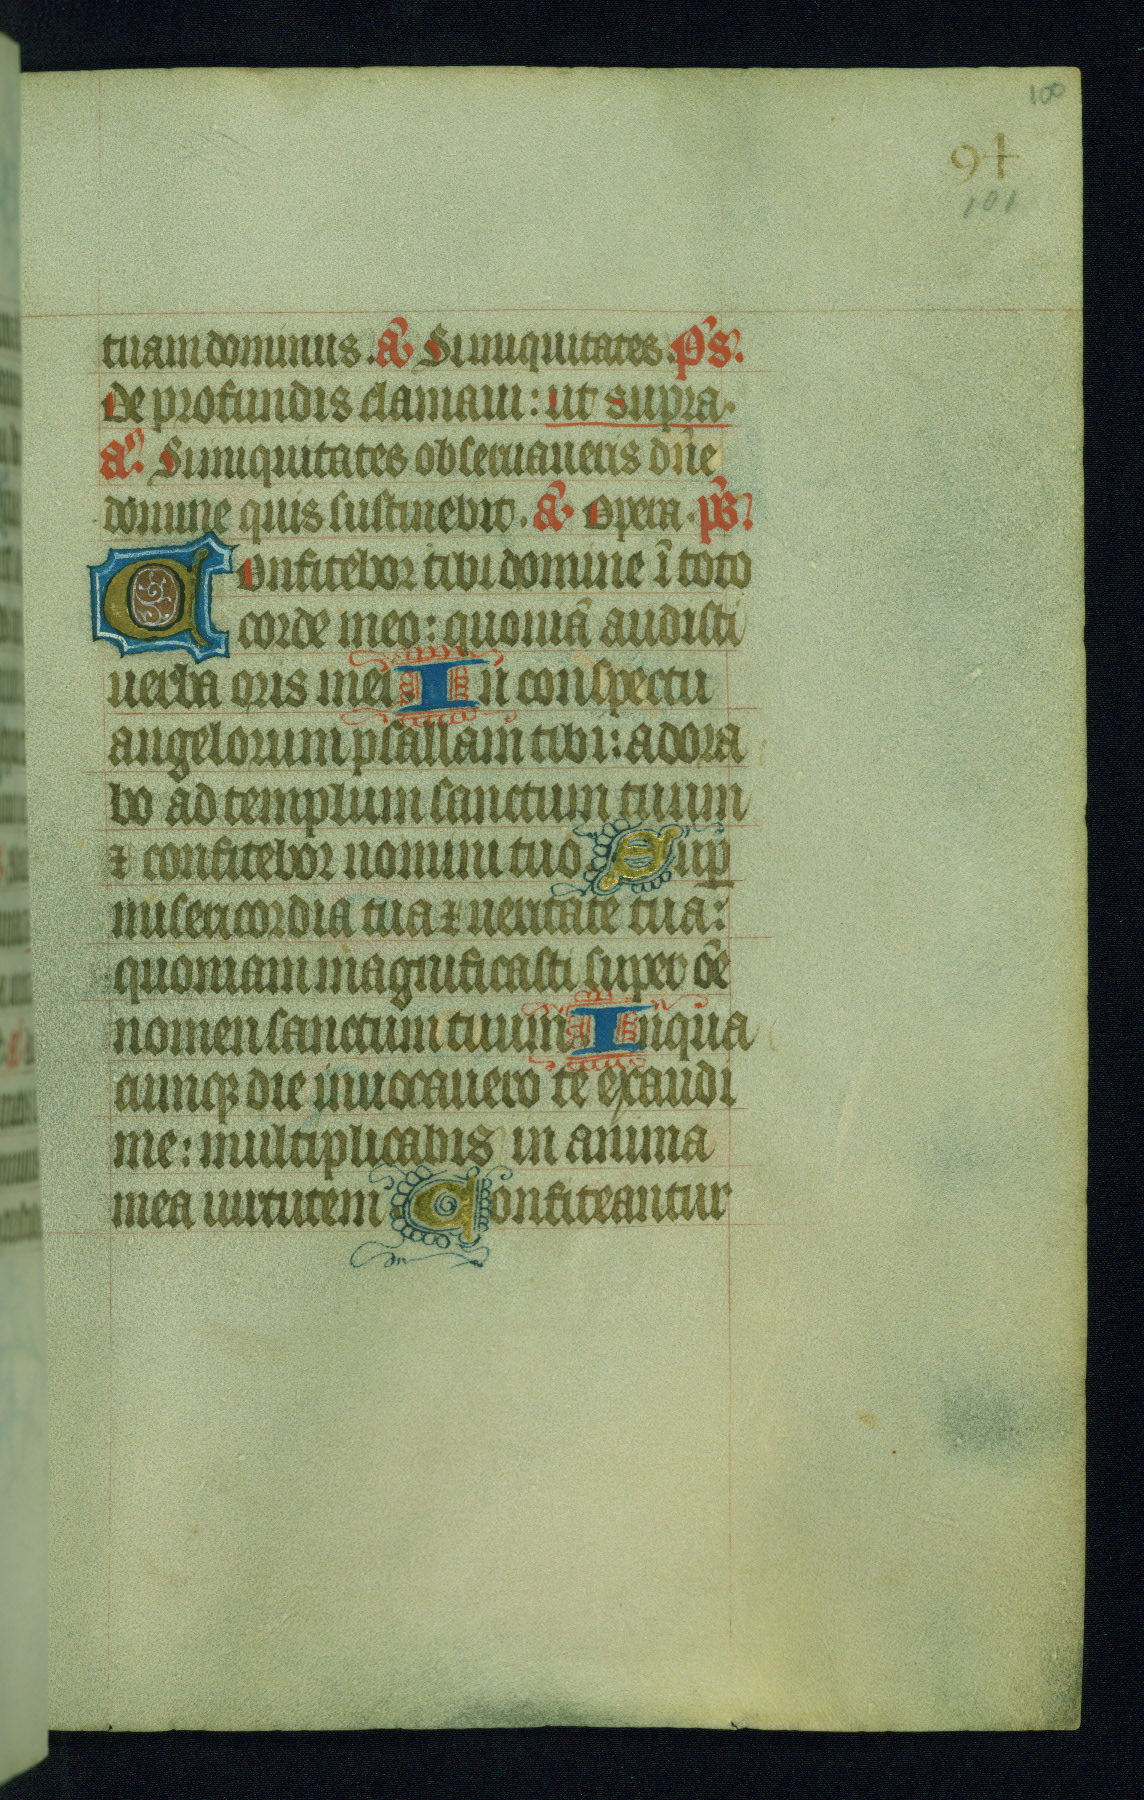 100
94
101
tuam dominus. A. Si iniquitates. Ps.
De profundis clamaui: ut supra.
An. Si iniquitates obseruaueris dñe
domine quis sustinebit. A. Opera. ps.
Confitebor tibi domine ĩ toto
corde meo: quoniã audisti
uerba oris mei. In conspectu
angelorum psallam tibi: adora
bo ad templum sanctum tuum
⁊ confitebor nomini tuo. Sup̱
misericordia tua ⁊ ueritate tua:
quoniam magnificasti super õe
nomen sanctum tuum. In qua
cumqꝫ die inuocauero te exaudi
me: multiplicabis in anima
mea uirtutem Confiteantur